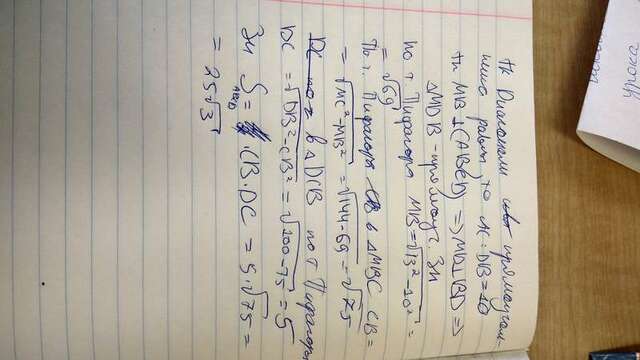 тк Диагонали прямоугол-
ника равны, то AC = DB = 10
тк MB ⊥ (ABCD) => MB ⊥ BD =>
△MDB - прямоуг. Зн
по т. Пифагора MB = √13² - 10² =
= √69
По т. Пифагора в △MBC CB =
= √MC² - MB² = √144 - 69 = √75
в △DCB по т Пифагора
DC = √DB² - CB² = √100 - 75 = 5
Зн S ABCD = CB · DC = 5 · √75 =
= 25√3